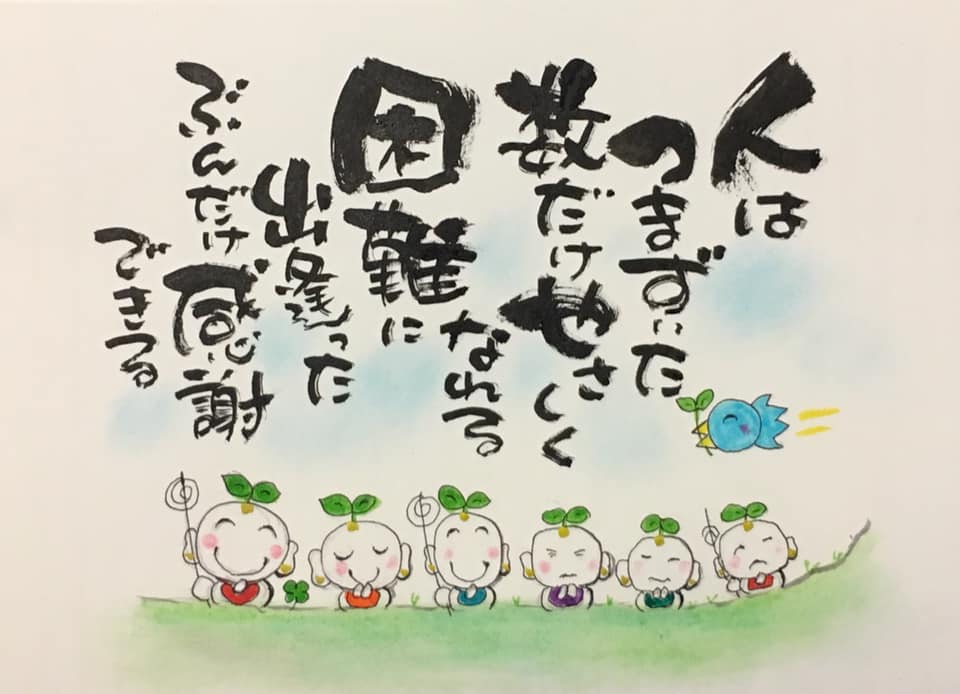 人は
つまずいた
数だけやさしく
なれる
困難に
出逢った
ぶんだけ感謝
できる